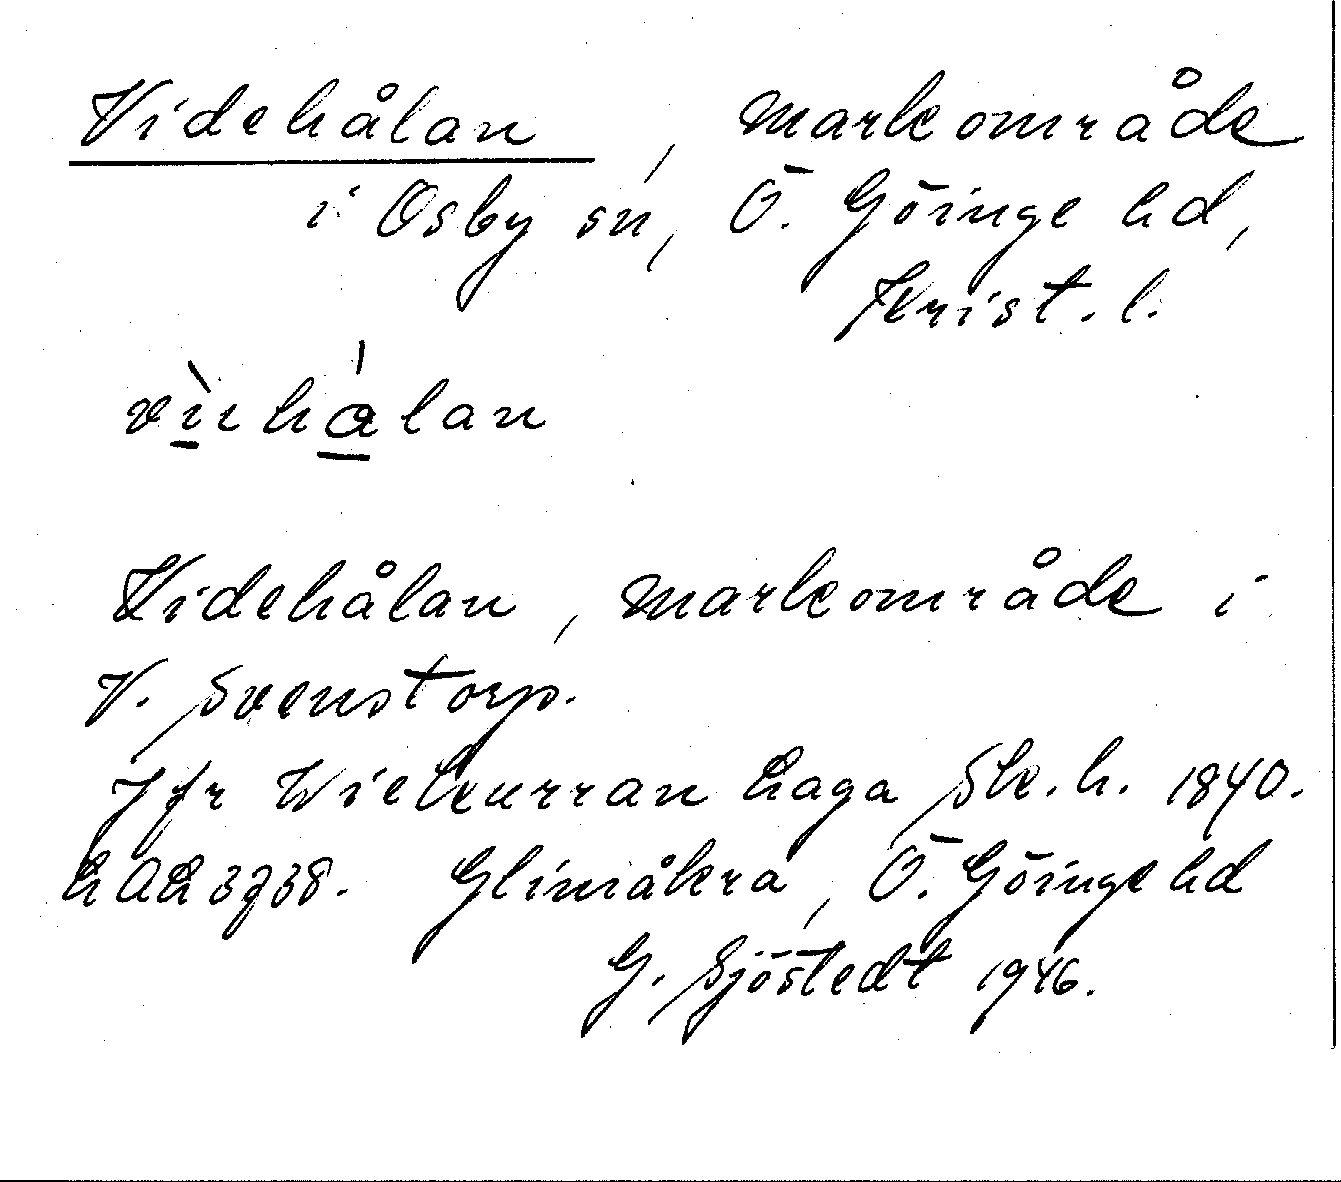 Videhålan, markområde
i Osby sn, Ö. Göinge hd,
Krist. l.
Videhålan, markområde i
V. Svenstorp.
Jfr Wiekurran Laga Sk. h. 1840.
Glimåkra, Ö. Göinge hd
G. Sjöstedt 1946.